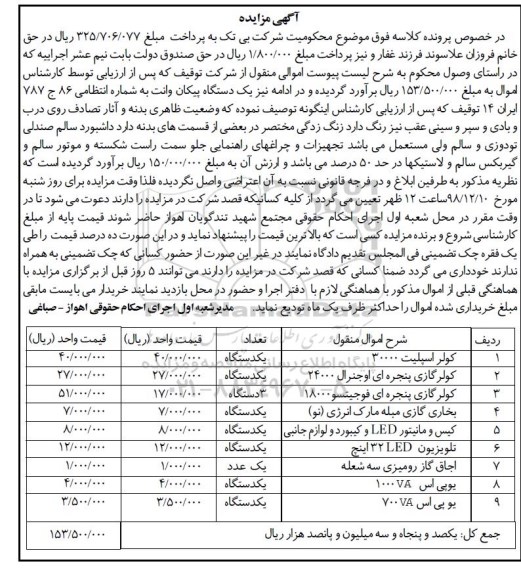 آگهی مزایده
در خصوص پرونده کلاسه فوق موضوع محکومیت شرکت بی تک به پرداخت مبلغ ۳۲۵/۷۰۶/۰۷۷ ریال در حق
خانم فروزان علاسوند فرزند غفار و نیز پرداخت مبلغ ۱/۸۰۰/۰۰۰ ریال در حق صندوق دولت بابت نیم عشر اجراییه که
در راستای وصول محکوم به شرح لیست پیوست اموالی منقول از شرکت توقیف که پس از ارزیابی توسط کارشناس
اموال به مبلغ ۱۵۳/۵۰۰/۰۰۰ ریال برآورد گردیده و در ادامه نیز یک دستگاه پیکان وانت به شماره انتظامی ۸۶ ج ۷۸۷
ایران ۱۴ توقیف که پس از ارزیابی کارشناس اینگونه توصیف نموده که وضعیت ظاهری بدنه و آثار تصادف روی درب
و بادی و سپر و سینی عقب نیز رنگ دارد زنگ زدگی مختصر در بعضی از قسمت های بدنه دارد داشبورد سالم صندلی
تودوزی و سالم ولی مستعمل می باشد تجهیزات و چراغهای راهنمایی جلو سمت راست شکسته و موتور سالم و
گیربکس سالم و لاستیکها در حد ۵۰ درصد می باشد و ارزش آن به مبلغ ۱۵۰/۰۰۰/۰۰۰ ریال برآورد گردیده است که
نظریه مذکور به طرفین ابلاغ و در فرجه قانونی نسبت به آن اعتراضی واصل نگردیده فلذا وقت مزایده برای روز شنبه
مورخ ۹۸/۱۲/۱۰ساعت ۱۲ ظهر تعیین می گردد از کلیه کسانیکه قصد شرکت در مزایده را دارند دعوت می شود تا در
وقت مقرر در محل شعبه اول اجرای احکام حقوقی مجتمع شهید تندگویان اهواز حاضر شوند قیمت پایه از مبلغ
کارشناسی شروع و برنده مزایده کسی است که بالاترین قیمت را پیشنهاد نماید و در این صورت ده درصد قیمت را طی
یک فقره چک تضمینی فی المجلس تقدیم دادگاه نمایند در غیر این صورت از حضور کسانی که چک تضمینی به همراه
ندارند خودداری می گردد ضمنا کسانی که قصد شرکت در مزایده را دارند می توانند ۵ روز قبل از برگزاری مزایده با
هماهنگی قبلی از اموال مذکور با هماهنگی لازم با دفتر اجرا و حضور در محل بازدید نمایند خریدار می بایست مابقی
مبلغ خریداری شده اموال را حداکثر ظرف یک ماه تودیع نماید. مدیر شعبه اول اجرای احکام حقوقی اهواز - صباغی
ردیف شرح اموال منقول تعداد قیمت واحد (ریال) قیمت واحد (ریال)
۱ کولر اسپلیت ۳۰۰۰۰ یکدستگاه ۴۰/۰۰۰/۰۰۰ ۴۰/۰۰۰/۰۰۰
۲ کولر گازی پنجره ای اوجنرال ۲۴۰۰۰ یکدستگاه ۲۷/۰۰۰/۰۰۰ ۲۷/۰۰۰/۰۰۰
۳ کولر گازی پنجره ای فوجیتسو ۱۸۰۰۰ ۳دستگاه ۱۷/۰۰۰/۰۰۰ ۵۱/۰۰۰/۰۰۰
۴ بخاری گازی مبله مارک انرژی (نو) یکدستگاه ۷/۰۰۰/۰۰۰ ۷/۰۰۰/۰۰۰
۵ کیس و مانیتور LED و کیبورد و لوازم جانبی یکدستگاه ۸/۰۰۰/۰۰۰ ۸/۰۰۰/۰۰۰
۶ تلویزیون LED ۳۲ اینچ یکدستگاه ۱۲/۰۰۰/۰۰۰ ۱۲/۰۰۰/۰۰۰
۷ اجاق گاز رومیزی سه شعله یک عدد ۱/۰۰۰/۰۰۰ ۱/۰۰۰/۰۰۰
۸ یوپی اس ۱۰۰۰ VA یکدستگاه ۴/۰۰۰/۰۰۰ ۴/۰۰۰/۰۰۰
۹ یو پی اس ۷۰۰ VA یکدستگاه ۳/۵۰۰/۰۰۰ ۳/۵۰۰/۰۰۰
جمع کل: یکصد و پنجاه و سه میلیون و پانصد هزار ریال ۱۵۳/۵۰۰/۰۰۰